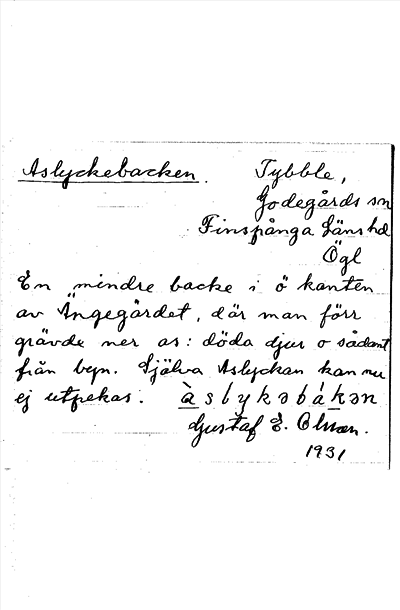 Aslyckebacken.
Tybble,
Godegårds sn
Finspånga Länshd
Ögl
En mindre backe i ö kanten
av Ängegärdet, där man förr
grävde ner as: döda djur o sådant
från byn. Själva Aslyckan kan nu
ej utpekas. àslykəbákən
Gustaf E. Olsson.
1931